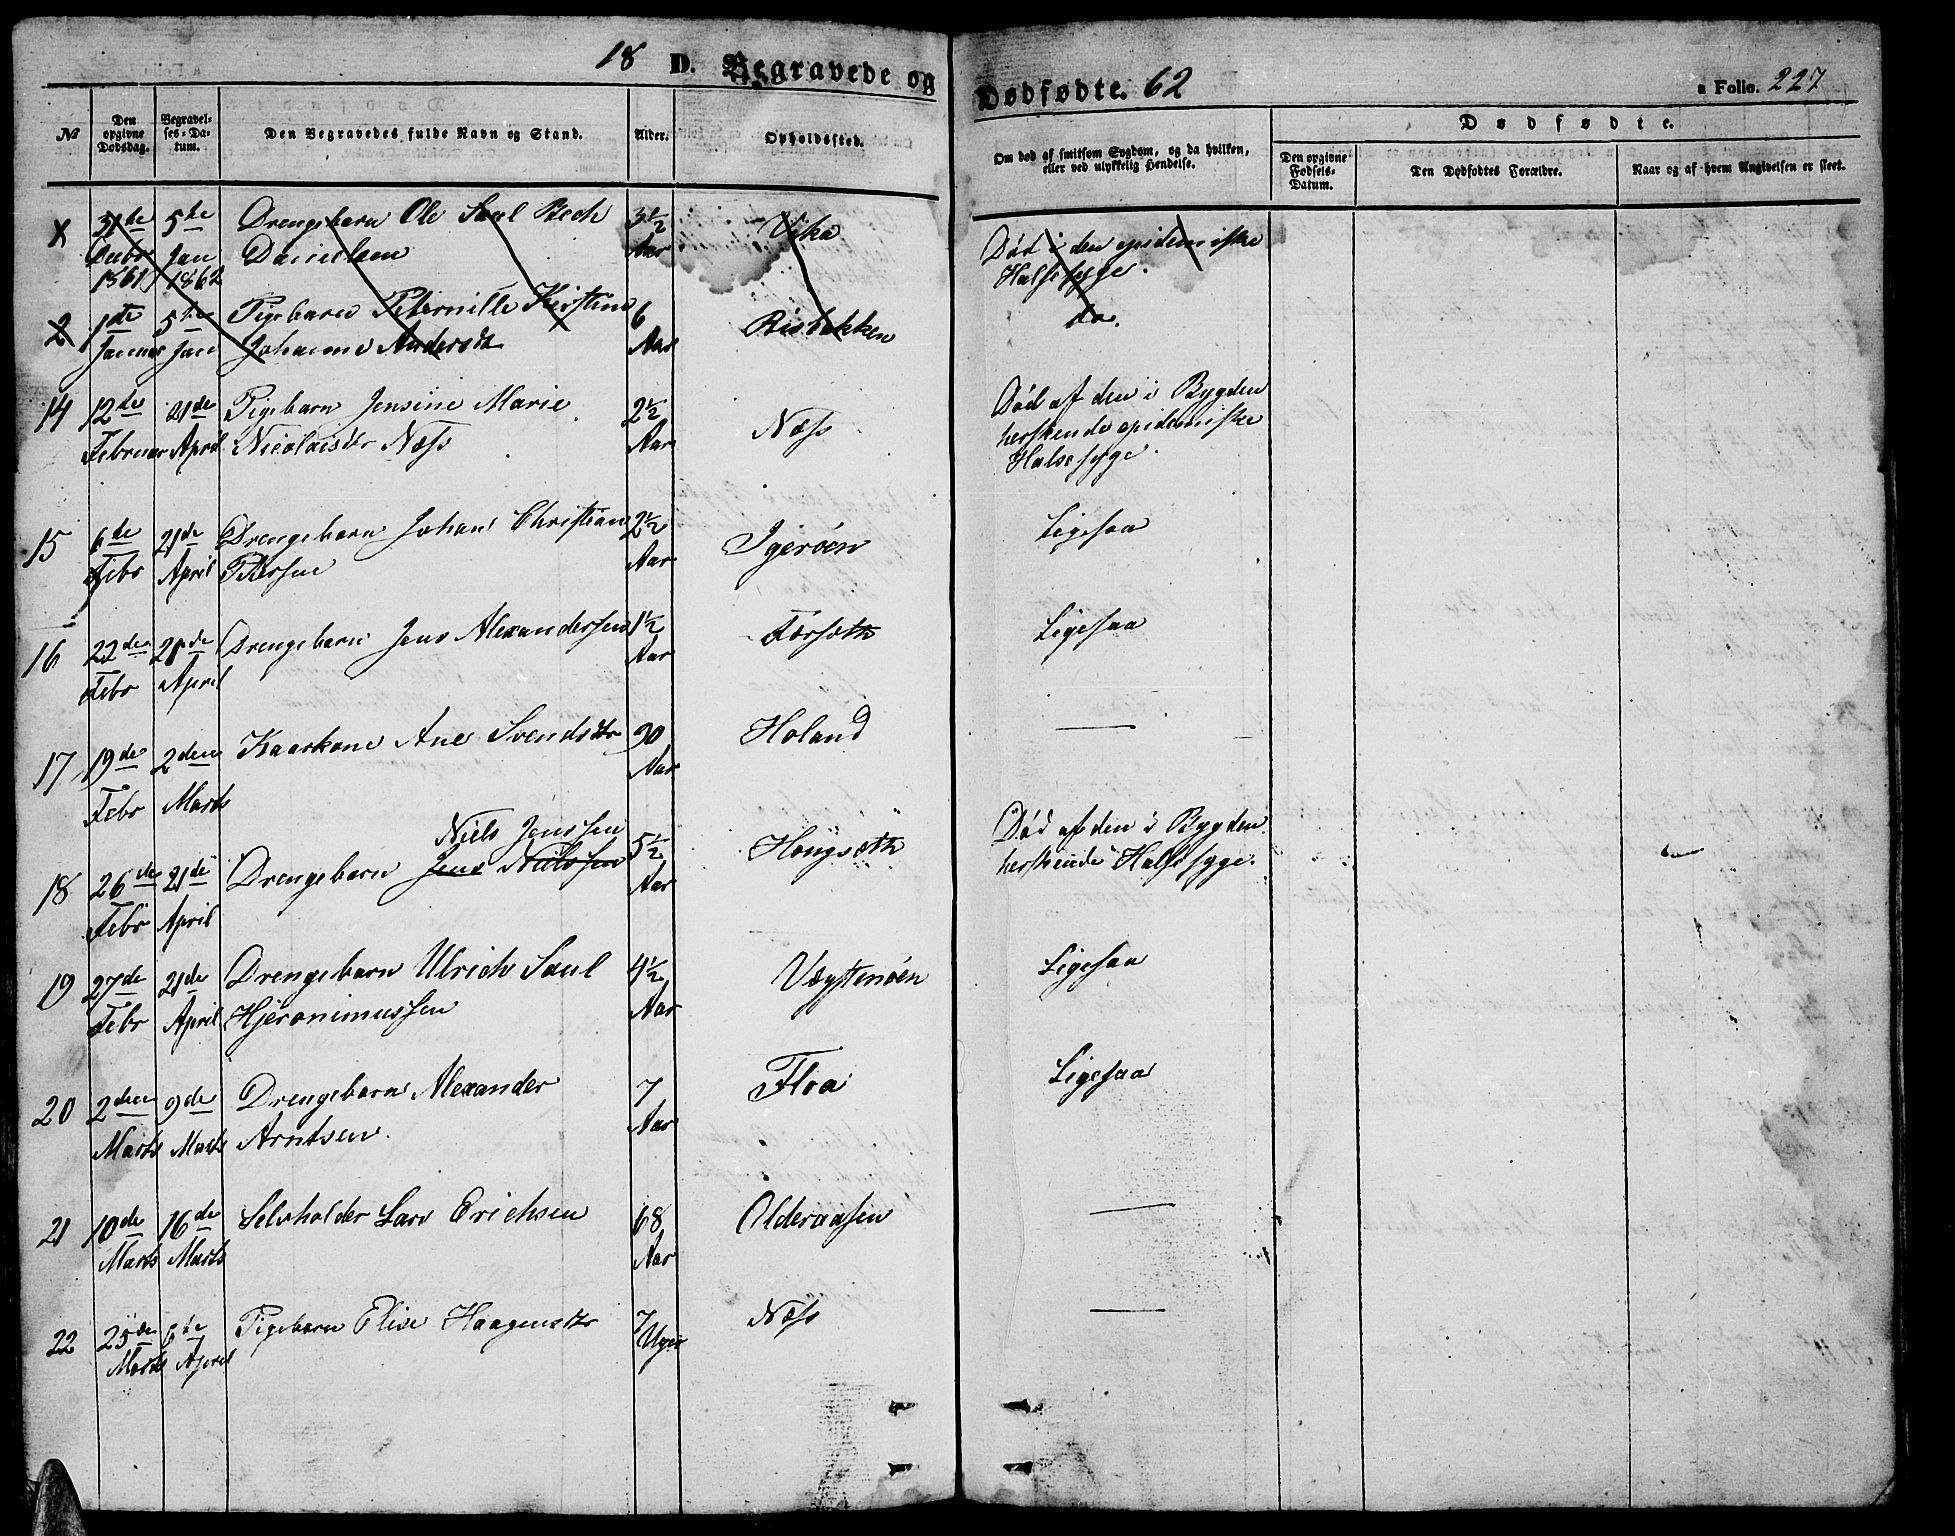 18 D. Begravede og Dødfødte. 62
a Folio. 227
No Den opgivne Dødsdag. Begravelses-Datum. Den Begravedes fulde Navn og Stand. Alder. Opholdssted. Om død af smitsom Sygdom, og da hvilken, eller ved ulykkelig Hendelse. Dødfødte.
Den opgivne Fødsels-Datum. Den Dødfødtes Forældre. Naar og af hvem Angivelsen er skeet.
31te 5te Drengebarn Ole Saul Bech 3½ Vika Død i den epidemiske
Decbr Jan Danielsen Aar Halssyge.
1861 1862
2 1ste 5te Pigebarn Peternille Kirstine 6 Risbakken do.
Januar Jan Johanne Andersdtr Aar
14 12te 21de Pigebarn Jensine Marie 2½ Næss Død af den i Bygden
Februar April Nicolaisdtr Næss Aar herskende epidemiske
Halssyge.
15 6te 21de Drengebarn Johan Christian 2½ Igerøen Ligesaa
Febr April Petersen Aar
16 22den 21de Drengebarn Jens Alexandersen 1½ Forsæth Ligesaa
Febr April Aar
17 19de 2den Kaarkone Ane Svendsdtr 90 Holand —
Febr Marts Aar
Niels Jenssen
18 26de 21de Drengebarn Jens Nielssen 5½ Høugsæth Død af den i Bygden
Febr April Aar herskende Halssyge.
19 27de 21de Drengebarn Ulrich Saul 4½ Vægstenøen Ligesaa
Febr April Hjeronimussen Aar
20 2den 9de Drengebarn Alexander 7 Floa Ligesaa
Marts Marts Arntsen. Aar
21 10de 16de Selvholder Lars Erichsen 68 Olderaasen —
Marts Marts Aar
22 25de 6te Pigebarn Elise Haagensdtr 7 Næss —
Marts April Uger